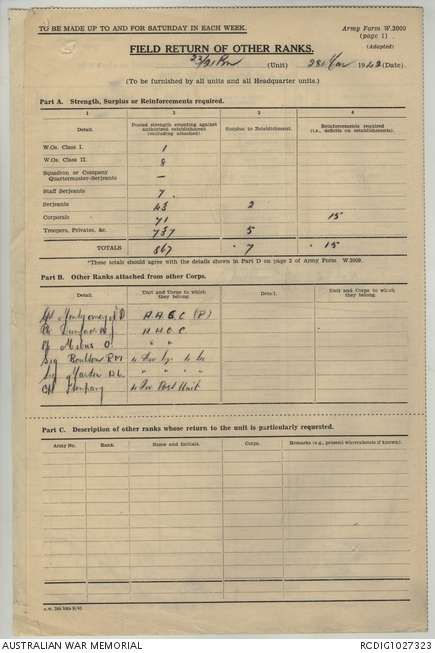 TO BE MADE UP TO AND FOR SATURDAY IN EACH WEEK.
Army Form W.3009
(page 1)
(Adapted)
FIELD RETURN OF OTHER RANKS.
23/21 Bn (Unit) 28 Mar 1942 (Date).
(To be furnished by all units and all Headquarter units.)
Part A. Strength, Surplus or Reinforcements required.
1 2 3 4
Detail. Posted strength counting against authorized establishment (excluding attached) Surplus to Establishment. Reinforcements required (i.e., deficits on establishments).
W.Os. Class I. 1
W.Os. Class II. 8
Squadron or Company Quartermaster-Serjeants —
Staff Serjeants 7
Serjeants 43 2
Corporals 71 15
Troopers, Privates, &c. 737 5
TOTALS 867 * 7 * 15
*These totals should agree with the details shown in Part D on page 2 of Army Form W.3009.
Part B. Other Ranks attached from other Corps.
Detail. Unit and Corps to which they belong. Detail. Unit and Corps to which they belong.
Montgomery D A A C C (P)
A A O C
O " "
Sig Boulton RM 4 Div Sigs
Sig " " " "
4 Div Post Unit
Part C. Description of other ranks whose return to the unit is particularly requested.
Army No. Rank. Name and Initials. Corps. Remarks (e.g., present whereabouts if known).
AUSTRALIAN WAR MEMORIAL
RCDIG1027323